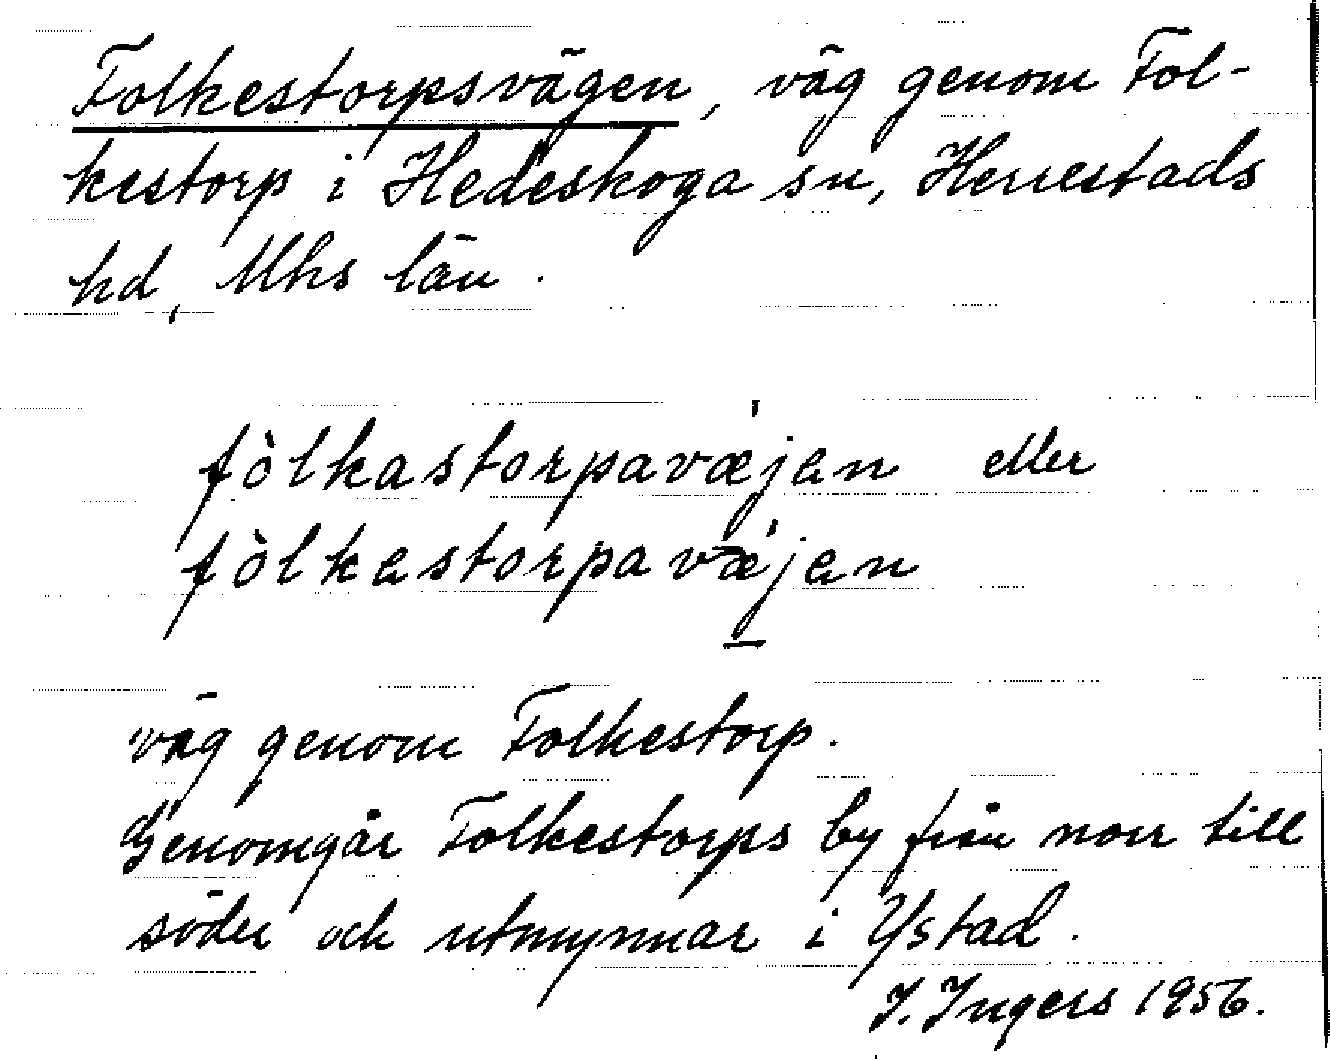 Folkestorpsvägen, väg genom Fol-
kestorp i Hedeskoga sn, Herrestads
hd, Mhs län.
fòlkastorpavæjen eller
fòlkastorpavæ̀jen
väg genom Folkestorp.
Genomgår Folkestorps by från norr till
söder och utmynnar i Ystad.
I. Ingers 1956.